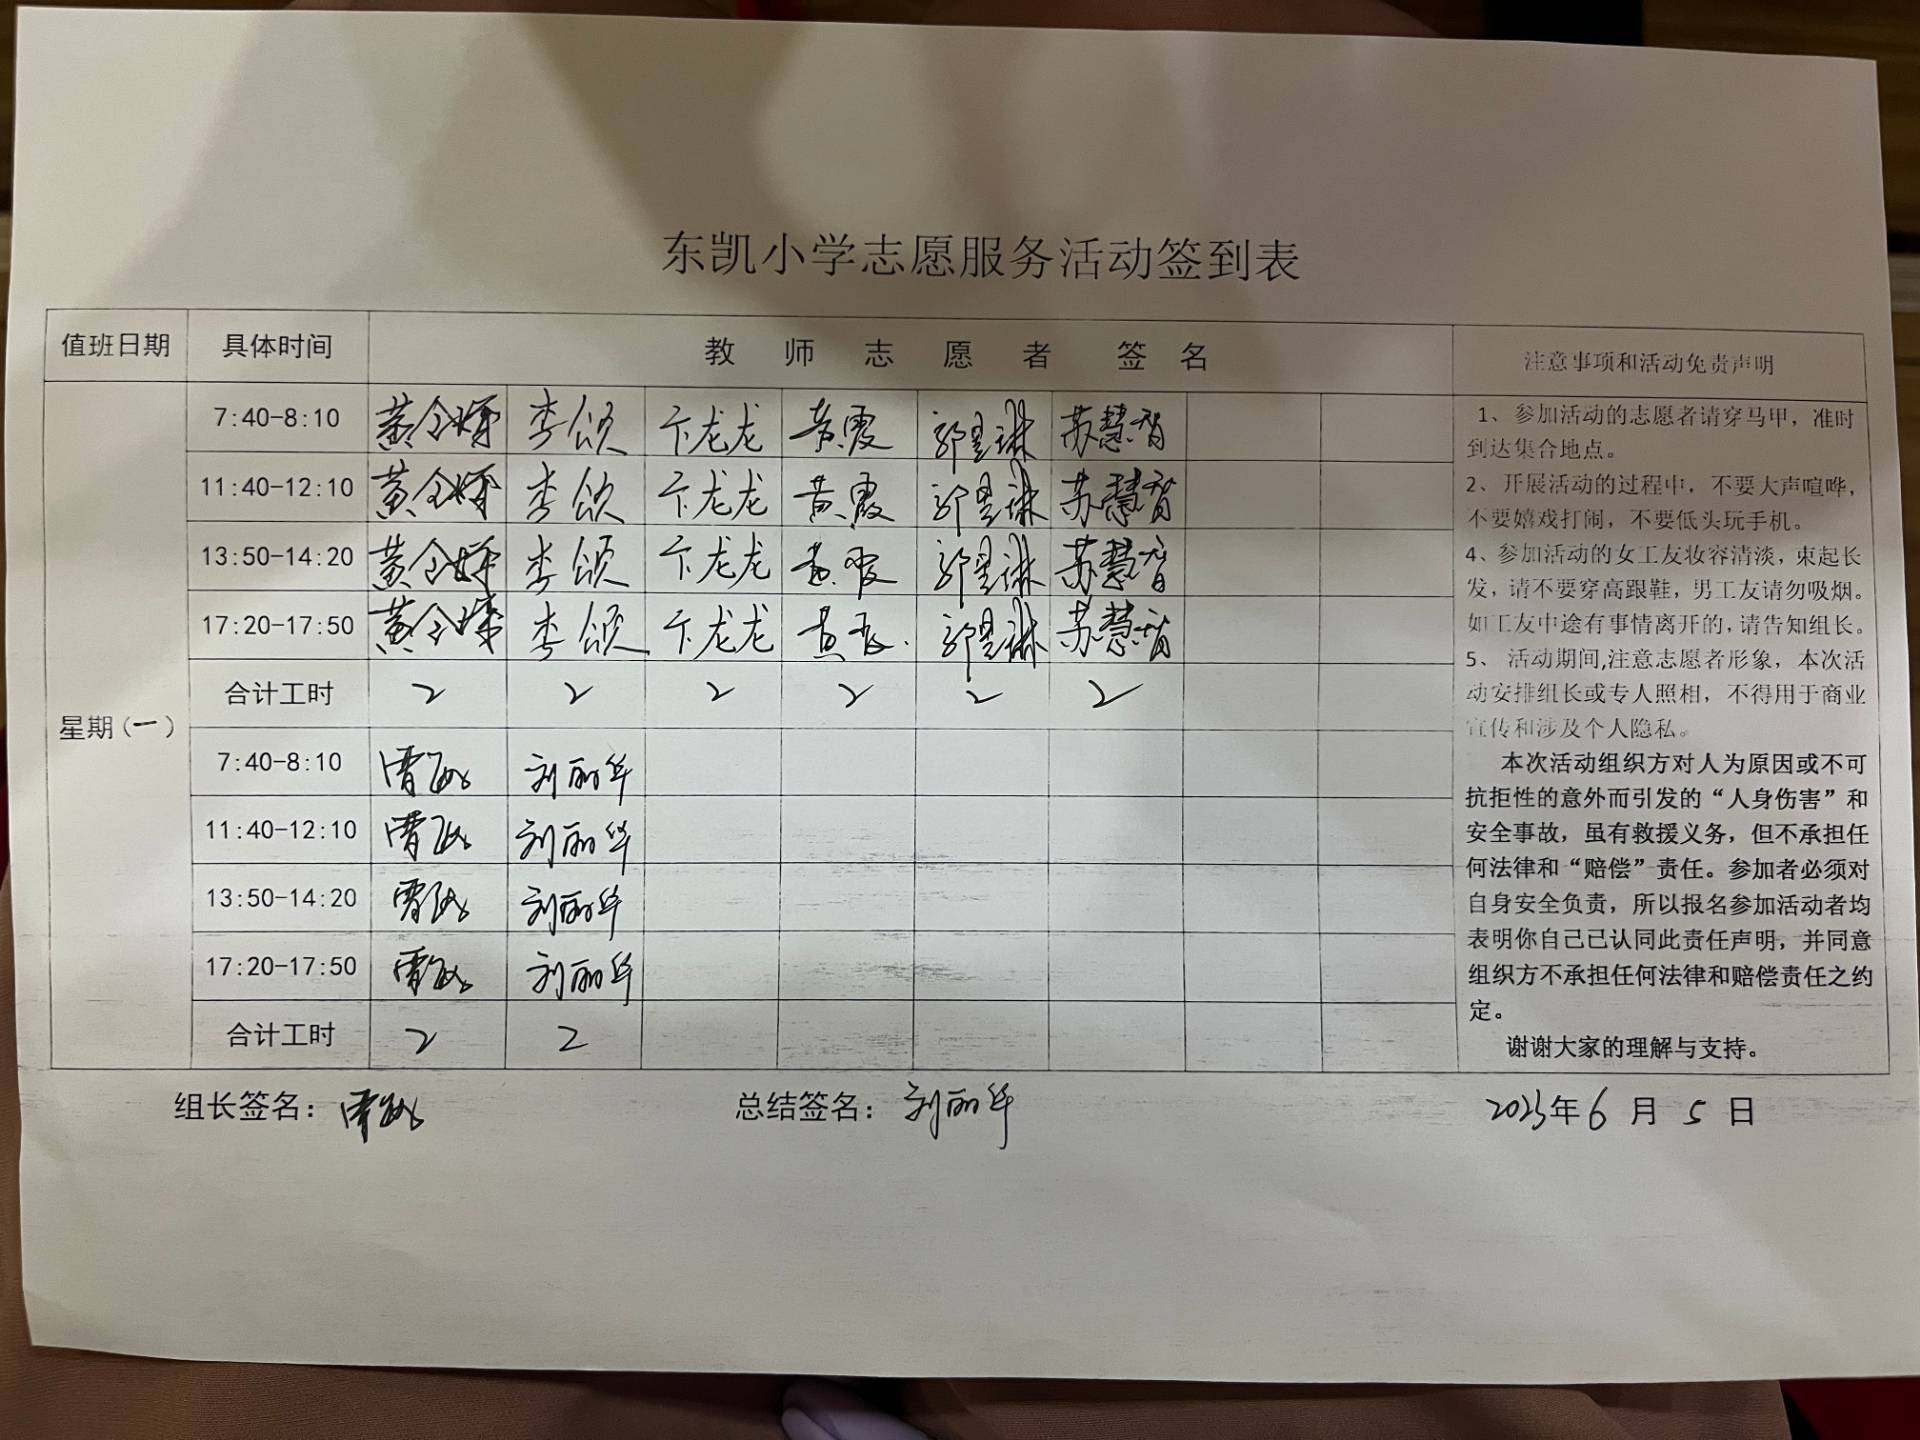 东凯小学志愿服务活动签到表
值班日期 具体时间 教师志愿者签名 注意事项和活动免责声明
星期(一)
7:40-8:10 李颂 卞龙龙 黄霞 郭昱琳 苏慧智
11:40-12:10 李颂 卞龙龙 黄霞 郭昱琳 苏慧智
13:50-14:20 李颂 卞龙龙 黄霞 郭昱琳 苏慧智
17:20-17:50 李颂 卞龙龙 黄霞 郭昱琳 苏慧智
合计工时 2 2 2 2 2 2
7:40-8:10 刘丽华
11:40-12:10 刘丽华
13:50-14:20 刘丽华
17:20-17:50 刘丽华
合计工时 2 2
1、参加活动的志愿者请穿马甲，准时
到达集合地点。
2、开展活动的过程中，不要大声喧哗，
不要嬉戏打闹，不要低头玩手机。
4、参加活动的女工友妆容清淡，束起长
发，请不要穿高跟鞋，男工友请勿吸烟。
如工友中途有事情离开的，请告知组长。
5、 活动期间,注意志愿者形象，本次活
动安排组长或专人照相，不得用于商业
宣传和涉及个人隐私。
本次活动组织方对人为原因或不可
抗拒性的意外而引发的“人身伤害”和
安全事故，虽有救援义务，但不承担任
何法律和“赔偿”责任。参加者必须对
自身安全负责，所以报名参加活动者均
表明你自己已认同此责任声明，并同意
组织方不承担任何法律和赔偿责任之约
定。
谢谢大家的理解与支持。
组长签名： 总结签名：刘丽华 2023年6月5日